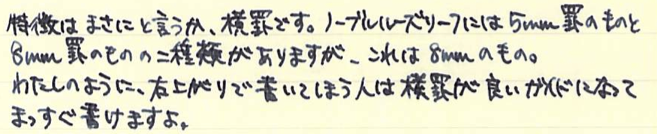 特徴はまさにと言うか、横罫です。ノーブルルーズリーフには5mm罫のものと
8mm罫のものの二種類がありますが、これは8mmのもの。
わたしのように、右上がりで書いてしまう人は横罫が良いガイドになって
まっすぐ書けますよ。